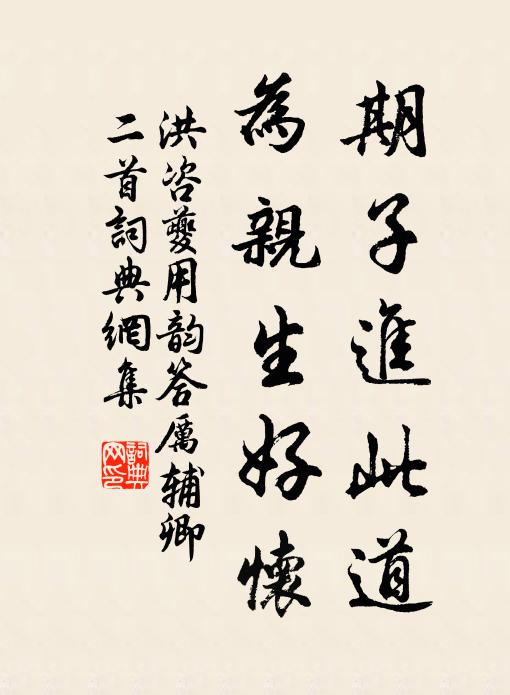 期子進此道
為親生好懷
洪咨夔用韵答厲輔卿
二首詞典網集
詞典網印